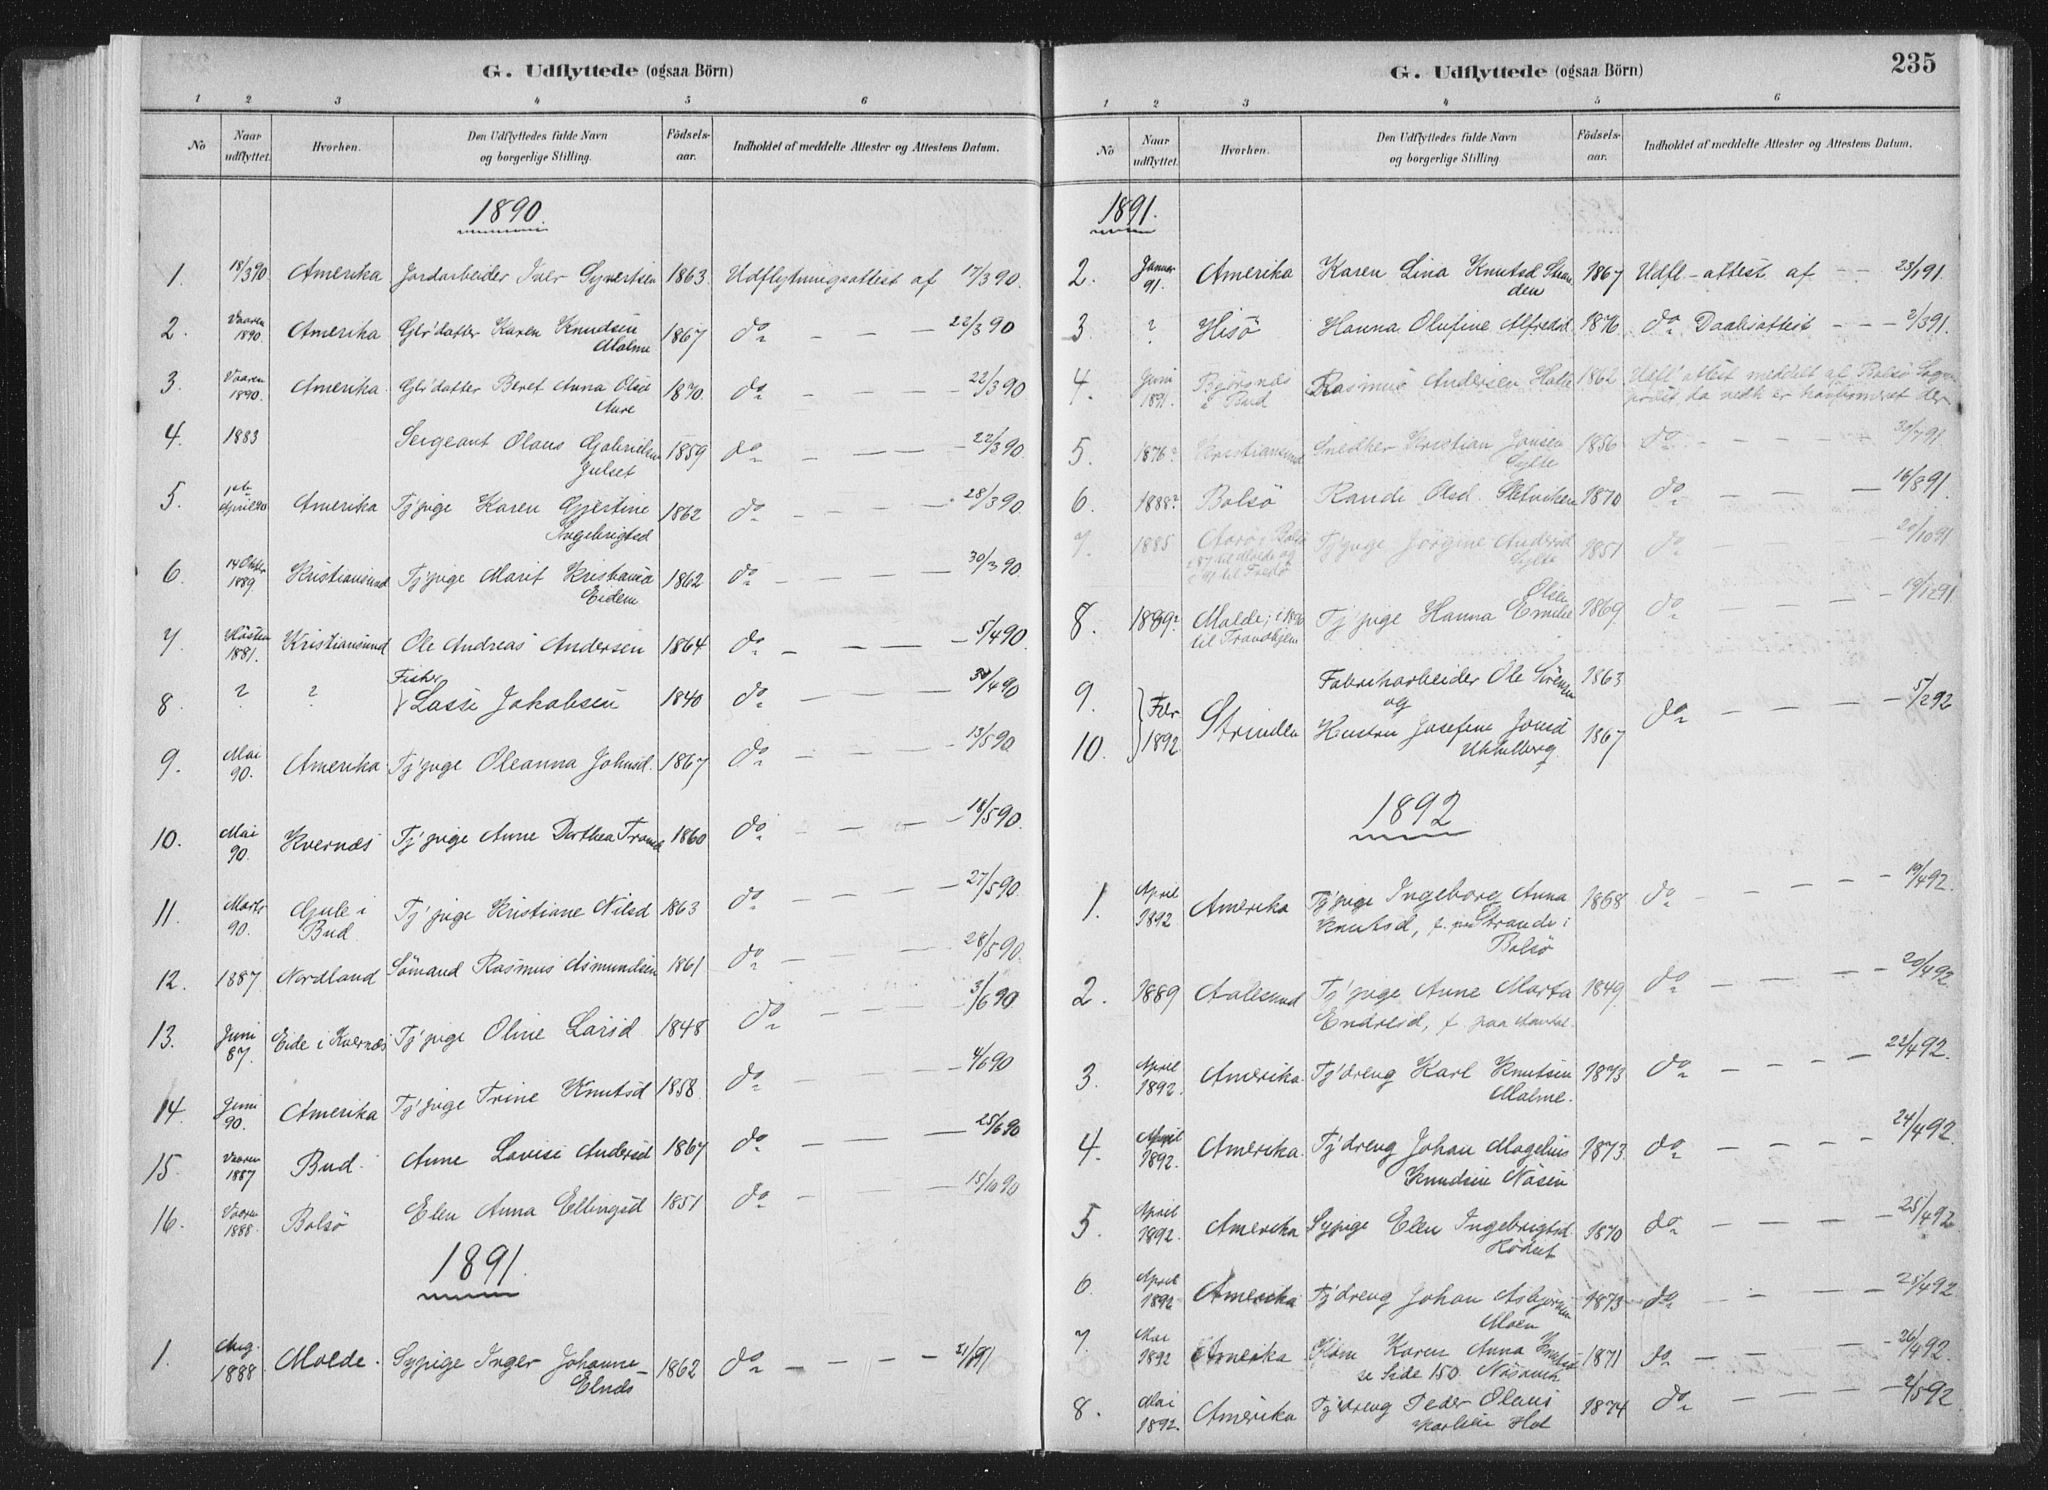 G. Udflyttede (ogsaa Börn)
1 2 3 4 5 6
No
Naar udflyttet.
Hvorhen.
Den Udflyttedes fulde Navn og borgerlige Stilling.
Födsels-aar.
Indholdet af meddelte Attester og Attestens Datum.
1890.
1. 18/3 90. Amerika Jordarbeider Iver Syvertsen 1863 Udflytningsattest af 17/3 90.
2. Vaaren 1890. Amerika Gbr'datter Karen Knudsen 1867 do — — 22/3 90
Malme
3. Vaaren 1890. Amerika. Gbr'datter Beret Anna Olsd 1870. do — — — 22/3 90
Aure
4. 1883 Sergeant Olaus Gabrielsen 1859 do — — — 22/3 90.
Julset
5. 1ste April 90 Amerika Tj'pige Karen Gjertine 1862 do — — — 28/3 90.
Ingebrigtsd
6. 14 Oktbr 1889. Kristiansund Tj'pige Marit Kristiansd 1862 do — — — 30/3 90.
Eidem
7. Hösten 1881. Kristiansund Ole Andreas Andersen 1864 do — — — 5/4 90.
Fisker
8. ? ? Lasse Jakobsen 1840 do — 30/4 90
9. Mai 90. Amerika Tj'pige Oleanna Johnsd. 1867 do — 13/5 90
10. Mai 90. Kvernæs Tj'pige Anne Dorthea 1860 do — — — 18/5 90.
11. Marts 90. Gule i Bud Tj'pige Kristiane Nilsd 1863 do — — — 27/5 90.
12. 1887 Nordland Sömand Rasmus Asmundsen 1861 do — — 28/5 90.
13. Juni 87. Eide i Kvernæs Tj'pige Oline Larsd 1848 do — — 3/6 90
14. Juni 90. Amerika Tj'pige Trine Knutsd 1858. do — — — 4/6 90
15. Vaaren 1887 Bud. Anne Lovise Andersd 1867 do — — — 25/6 90
16. Vaaren 1888. Bolsö Elen Anna Ellingsd 1851 do — — 15/10 90
1891.
1. Aug. 1888 Molde. Sypige Inger Johanne 1862 do — — — 21/1 91
Elnæs
G. Udflyttede (ogsaa Börn)
235
1 2 3 4 5 6
No
Naar udflyttet.
Hvorhen.
Den Udflyttedes fulde Navn og borgerlige Stilling.
Födsels-aar.
Indholdet af meddelte Attester og Attestens Datum.
1891.
2. Januar 91. Amerika Karen Lina Knutsd Stran 1867 Udfl-attest af — — 23/1 91.
den
3. ? Hisö Hanna Olufine Alfredsd. 1876 do Daabsattest — — — 2/3 91.
4. Juni 1891. Bjørsnes i Bud Rasmus Andersen 1862 Udfl'attest meddelt af Bolsö Sogne
præst, da vedk er konfirmeret der
5. 1876? Kristiansund Snedker Kristian Jonsen 1856 do — — — 30/7 91.
Sylte
6. 1888? Bolsö Randi Olsd. Sletviken 1870 do — — — 16/8 91.
7. 1885 Aarö i Bolsö 87 til Molde og 91 til Fredö Tj'pige Jörgine Andersd 1851 do — 20/10 91
Sylte
Olsen
8. 1889? Molde; i 1890 til Trondhjem Tj'pige Hanna Emilie 1869. do — — — 19/12 91
9. Fabrikarbeider Ole Sörensen 1863
og
10. Febr 1892 Strinden Hustru Josefine Jonsd 1867 do — — — 5/2 92
1892
1. April 1892 Amerika Tj'pige Ingeborg Anna 1868 do — — — 19/4 92.
Knutsd, f. paa Strande i
Bolsö
2. 1889 Aalesund Tj'pige Anne Marta 1849. do — — — 20/4 92
Endresd, f. paa
3. April 1892. Amerika. Tj'dreng Karl Knutsen 1873 do — — — 22/4 92.
Malme.
4. April 1892. Amerika. Tj'dreng Johan Magelius 1873. do — — — 24/4 92.
Knudsen Näsen
5. April 1892. Amerika Sypige Elen Ingebrigtsd. 1870 do — — — 25/4 92
Rödset
6. April 1892 Amerika Tj'dreng Johan Asbjørnsen 1873 do — — — 25/4 92
Moen
7. Mai 1892 Amerika Karen Anna Knutsd 1871 do — — — 26/4 92.
se Side 150
8. Mai 1892. Amerika Tj'dreng Peder Olaus 1874 do — — — 2/5 92
Karlsen Hol